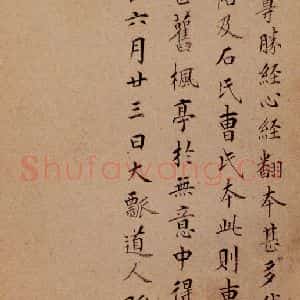 尊勝経心経翻本甚多
及石氏曹氏本此則
舊楓亭於無意中得
六月廿三日大瓢道人
Shufawang.Cn